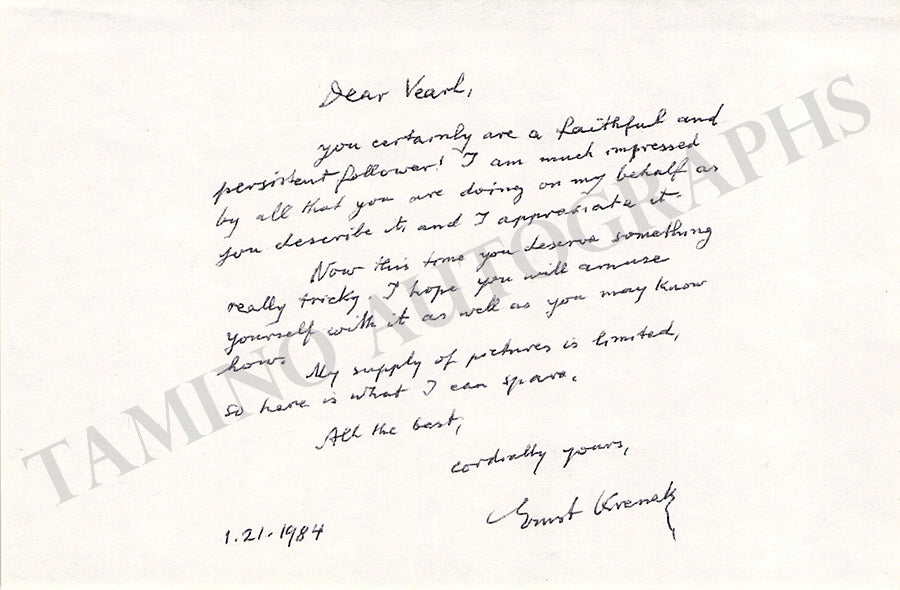 Dear Vearl,
you certainly are a faithful and
persistent follower! I am much impressed
by all that you are doing on my behalf as
you describe it, and I appreciate it.
Now this time you deserve something
really tricky. I hope you will amuse
yourself with it as well as you may know
how.
My supply of pictures is limited,
so here is what I can spare.
All the best,
cordially yours,
Ernst Krenek
1.21.1984
TAMINO AUTOGRAPHS